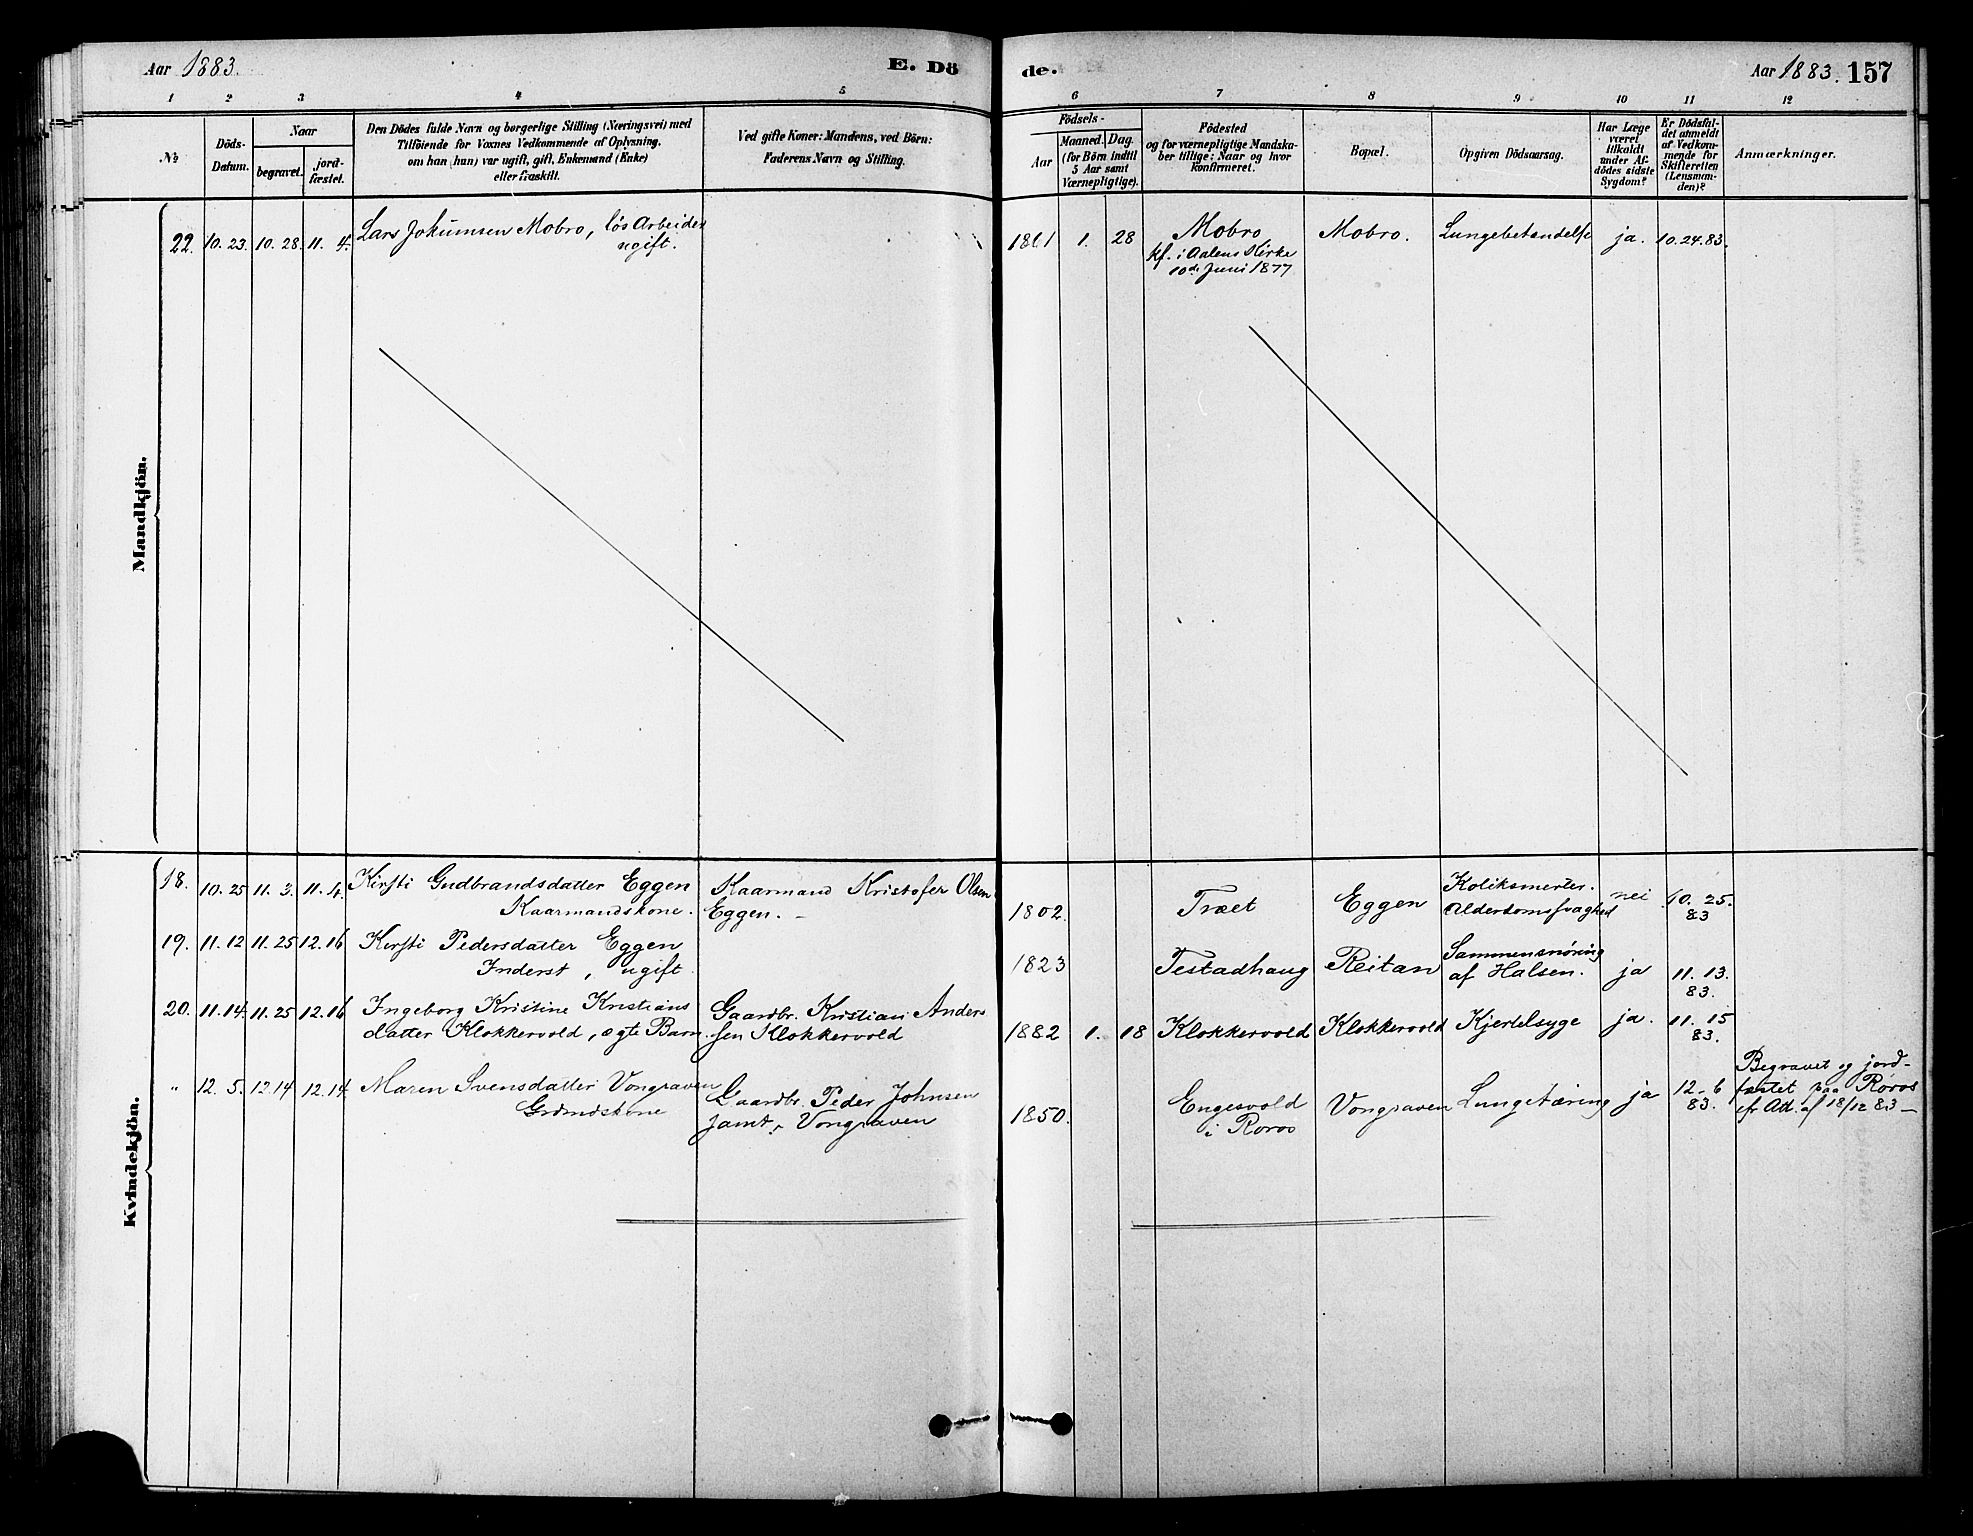 Aar 1883.
E. Dö
de.
Aar 1883. 157
1 2 3 4 5 6 7 8 9 10 11 12
№
Döds-
Datum.
Naar
begravet.
jord-
fæstet.
Den Dödes fulde Navn og borgerlige Stilling (Næringsvei) med
Tilföiende for Voxnes Vedkommende af Oplysning,
om han (hun) var ugift, gift, Enkemand (Enke)
eller fraskilt.
Ved gifte Koner: Mandens, ved Börn:
Faderens Navn og Stilling.
Födsels-
Aar
Maaned. Dag.
(for Börn indtil
5 Aar samt
Værnepligtige).
Födested
og for værnepligtige Mandska-
ber tillige: Naar og hvor
konfirmeret.
Bopæl.
Opgiven Dödsaarsag.
Har Læge
været
tilkaldt
under Af-
dödes sidste
Sygdom?
Er Dödsfal-
det anmeldt
af Vedkom-
mende for
Skifteretten
(Lensman-
den)?
Anmærkninger.
Mandkjön.
22. 10. 23. 10. 28. 11. 4. Lars Jokumsen Mobro, løs Arbeider
ugift.
1861 1. 28 Mobro
kf. i Aalens Kirke
10de Juni 1877
Mobro. Lungebetændelse ja. 10.24.83.
Kvindekjön.
18. 10. 25 11. 3. 11. 4. Kirsti Gudbrandsdatter Eggen
Kaarmandskone.
Kaarmand Kristofer Olsen
Eggen. –
1802. Træet Eggen
Koliksmerter.
Alderdomssvaghed
nei 10. 25.
83
19. 11. 12 11. 25 12. 16 Kirsti Pedersdatter Eggen
Inderst, ugift
1823 Testadhaug Reitan
Sammensnøring
af Halsen.
ja 11. 13.
83.
20. 11. 14. 11. 25 12. 16 Ingeborg Kristine Kristians
datter Klokkervold, ægte Barn.
Gaardbr. Kristian Anders
sen Klokkervold
1882 1. 18 Klokkervold Klokkervold Kjertelsyge ja. 11. 15
83.
" 12. 5. 12. 14 12. 14 Maren Svensdatter Vongraven
Grdmdskone
Gaardbr. Peder Johnsen
Jamt, Vongraven
1850. Engesvold
i Røros
Vongraven Lungetæring ja 12. 6
83.
Begravet og jord-
fæstet paa Røros
cfr Att. af 18/12 83 –